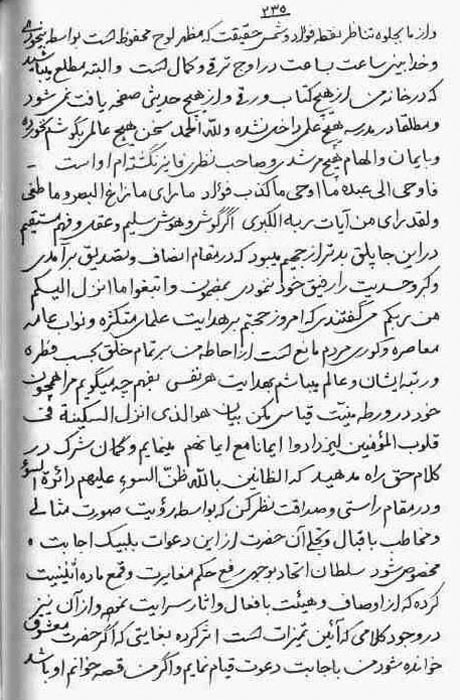 ۲۳۵
و از ما بجلوه تناظر نقطه فؤاد و شمس حقیقت که مظهر لوح محفوظ است بواسطه
و خدا بینی ساعت بساعت در اوج ترقی و کمال است و البته مطلع میباشید
که در خانه من از هیچ کتاب ورقی و از هیچ حدیثی صفحه یافت نمی شود
و مطلقا در مدرسه هیچ علمی داخل نشده و لله الحمد سخن هیچ عالم بگوشم نخورده
و بایمان و الهام هیچ مرشد و صاحب نظری فایز نگشته ام او است
فاوحی الی عبده ما اوحی ما کذب فؤاد ما رای ما زاغ البصر و ما طغی
و لقد رای من آیات ربه الکبری اگر گوش و هوش سلیم و عقل و فهم مستقیم
در این جا پلق بدتر از جحیم میبود که در مقام انصاف و تصدیق بر آمدی
و کبر و حدیت را رفیق خود ننمودی بمضمون و اتبعوا ما انزل الیکم
من ربکم می گفتند که امروز حجتم بر هدایت علمای متکثره و نواب عامه
معاصره و کوری مردم مانع است از احاطه من بر تمام خلق بحسب فطره
و رتبه ایشان و عالم میباشم بهدایت هر نفسی بفهم چه میگویم مرا همچون
خود در ورطه منیت قیاس مکن بیان هو الذی انزل السکینة فی
قلوب المؤمنین لیزدادوا ایمانا مع ایمانهم مینمایم و گمان شرک در
کلام حق راه مدهید که الظانین بالله ظن السوء علیهم دائرة السوء
و در مقام راستی و صداقت نظر کن که بواسطه رؤیت صورت مثالی
و مخاطب باقبال و تجلی آن حضرت از این دعوات بلبیک اجابت
مخصوص شود سلطان اتحاد بوجهی رفع حکم مغایرت و قمع ماده اثنینیت
کرده که از اوصاف و هیئت بافعال و آثار سرایت نموده و از آن نیز
در وجود کلامی که آئین تمیزات است اثر کرده بغایتی که اگر حضرت معشوق
خوانده شود من باجابت دعوت قیام نمایم و اگر من قصه خوانم او باشد